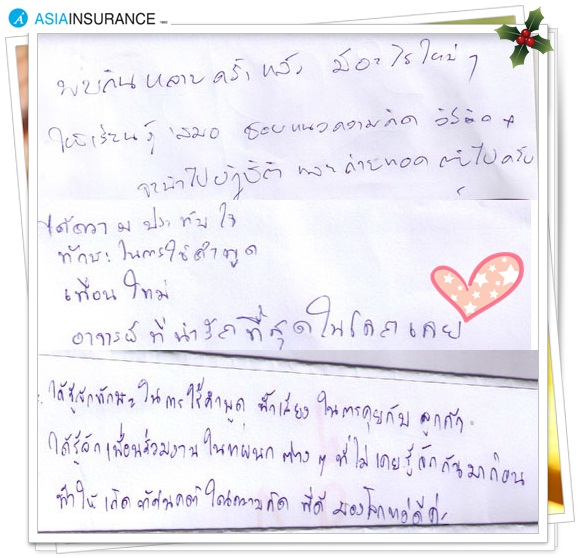 ASIAINSURANCE 1950
พบกันหลายครั้งแล้ว มีอะไรใหม่ๆ
ให้เรียนรู้เสมอ ชอบแนวความคิด วิธีคิด +
จะนำไปปฏิบัติ และถ่ายทอด ต่อไปครับ
ได้ความประทับใจ
ทักษะในการใช้คำพูด
เพื่อนใหม่
อาจารย์ที่น่ารักที่สุดในโลกเลย
ได้รู้จักทักษะในการใช้คำพูด น้ำเสียง ในการคุยกับ ลูกค้า
ได้รู้จักเพื่อนร่วมงานในแผนกต่างๆ ที่ไม่เคยรู้จักกันมาก่อน
ทำให้เกิดทัศนคติในความคิด ที่ดี มองโลกแง่ดีค่ะ